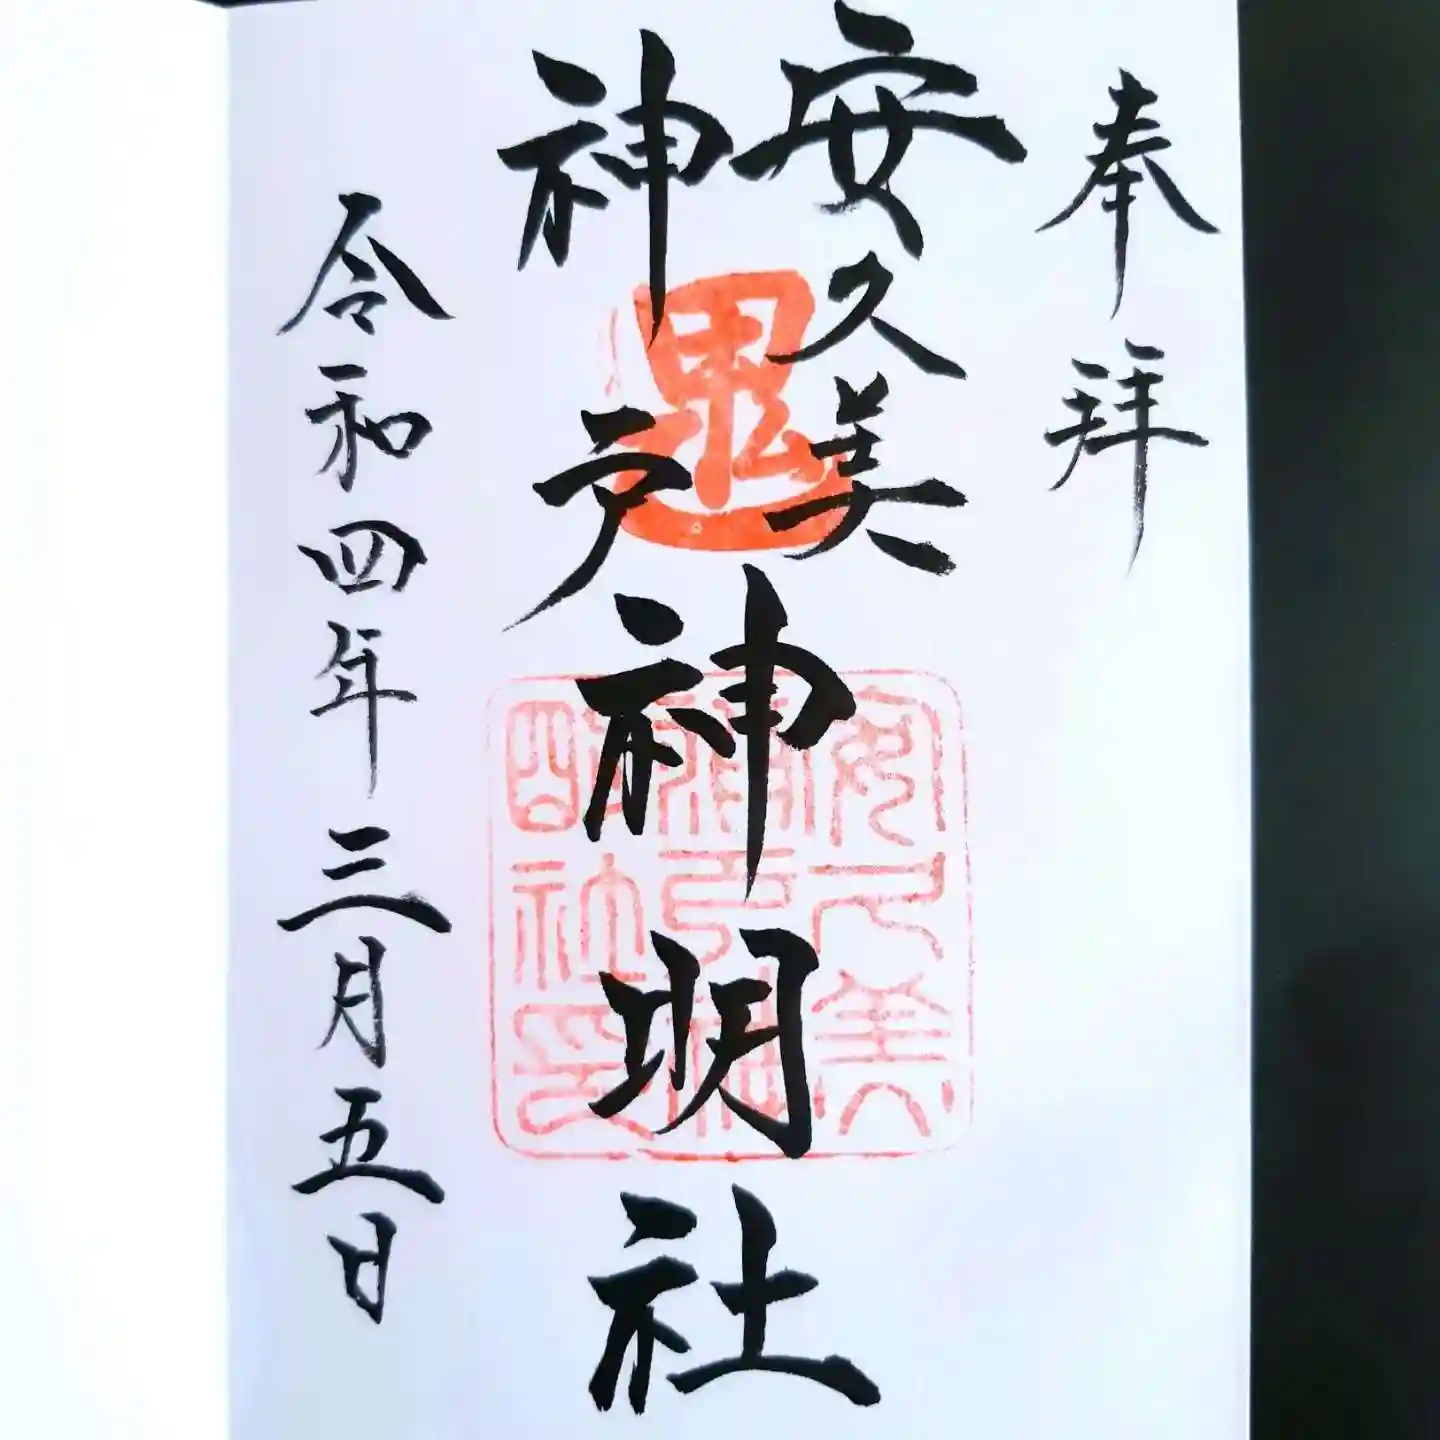 奉拝
安久美
神戸
神明社
令和四年三月五日
安久美
神戸神
明社印